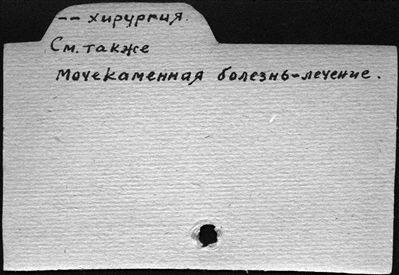 -- хирургия.
См. также
Мочекаменная болезнь-лечение.